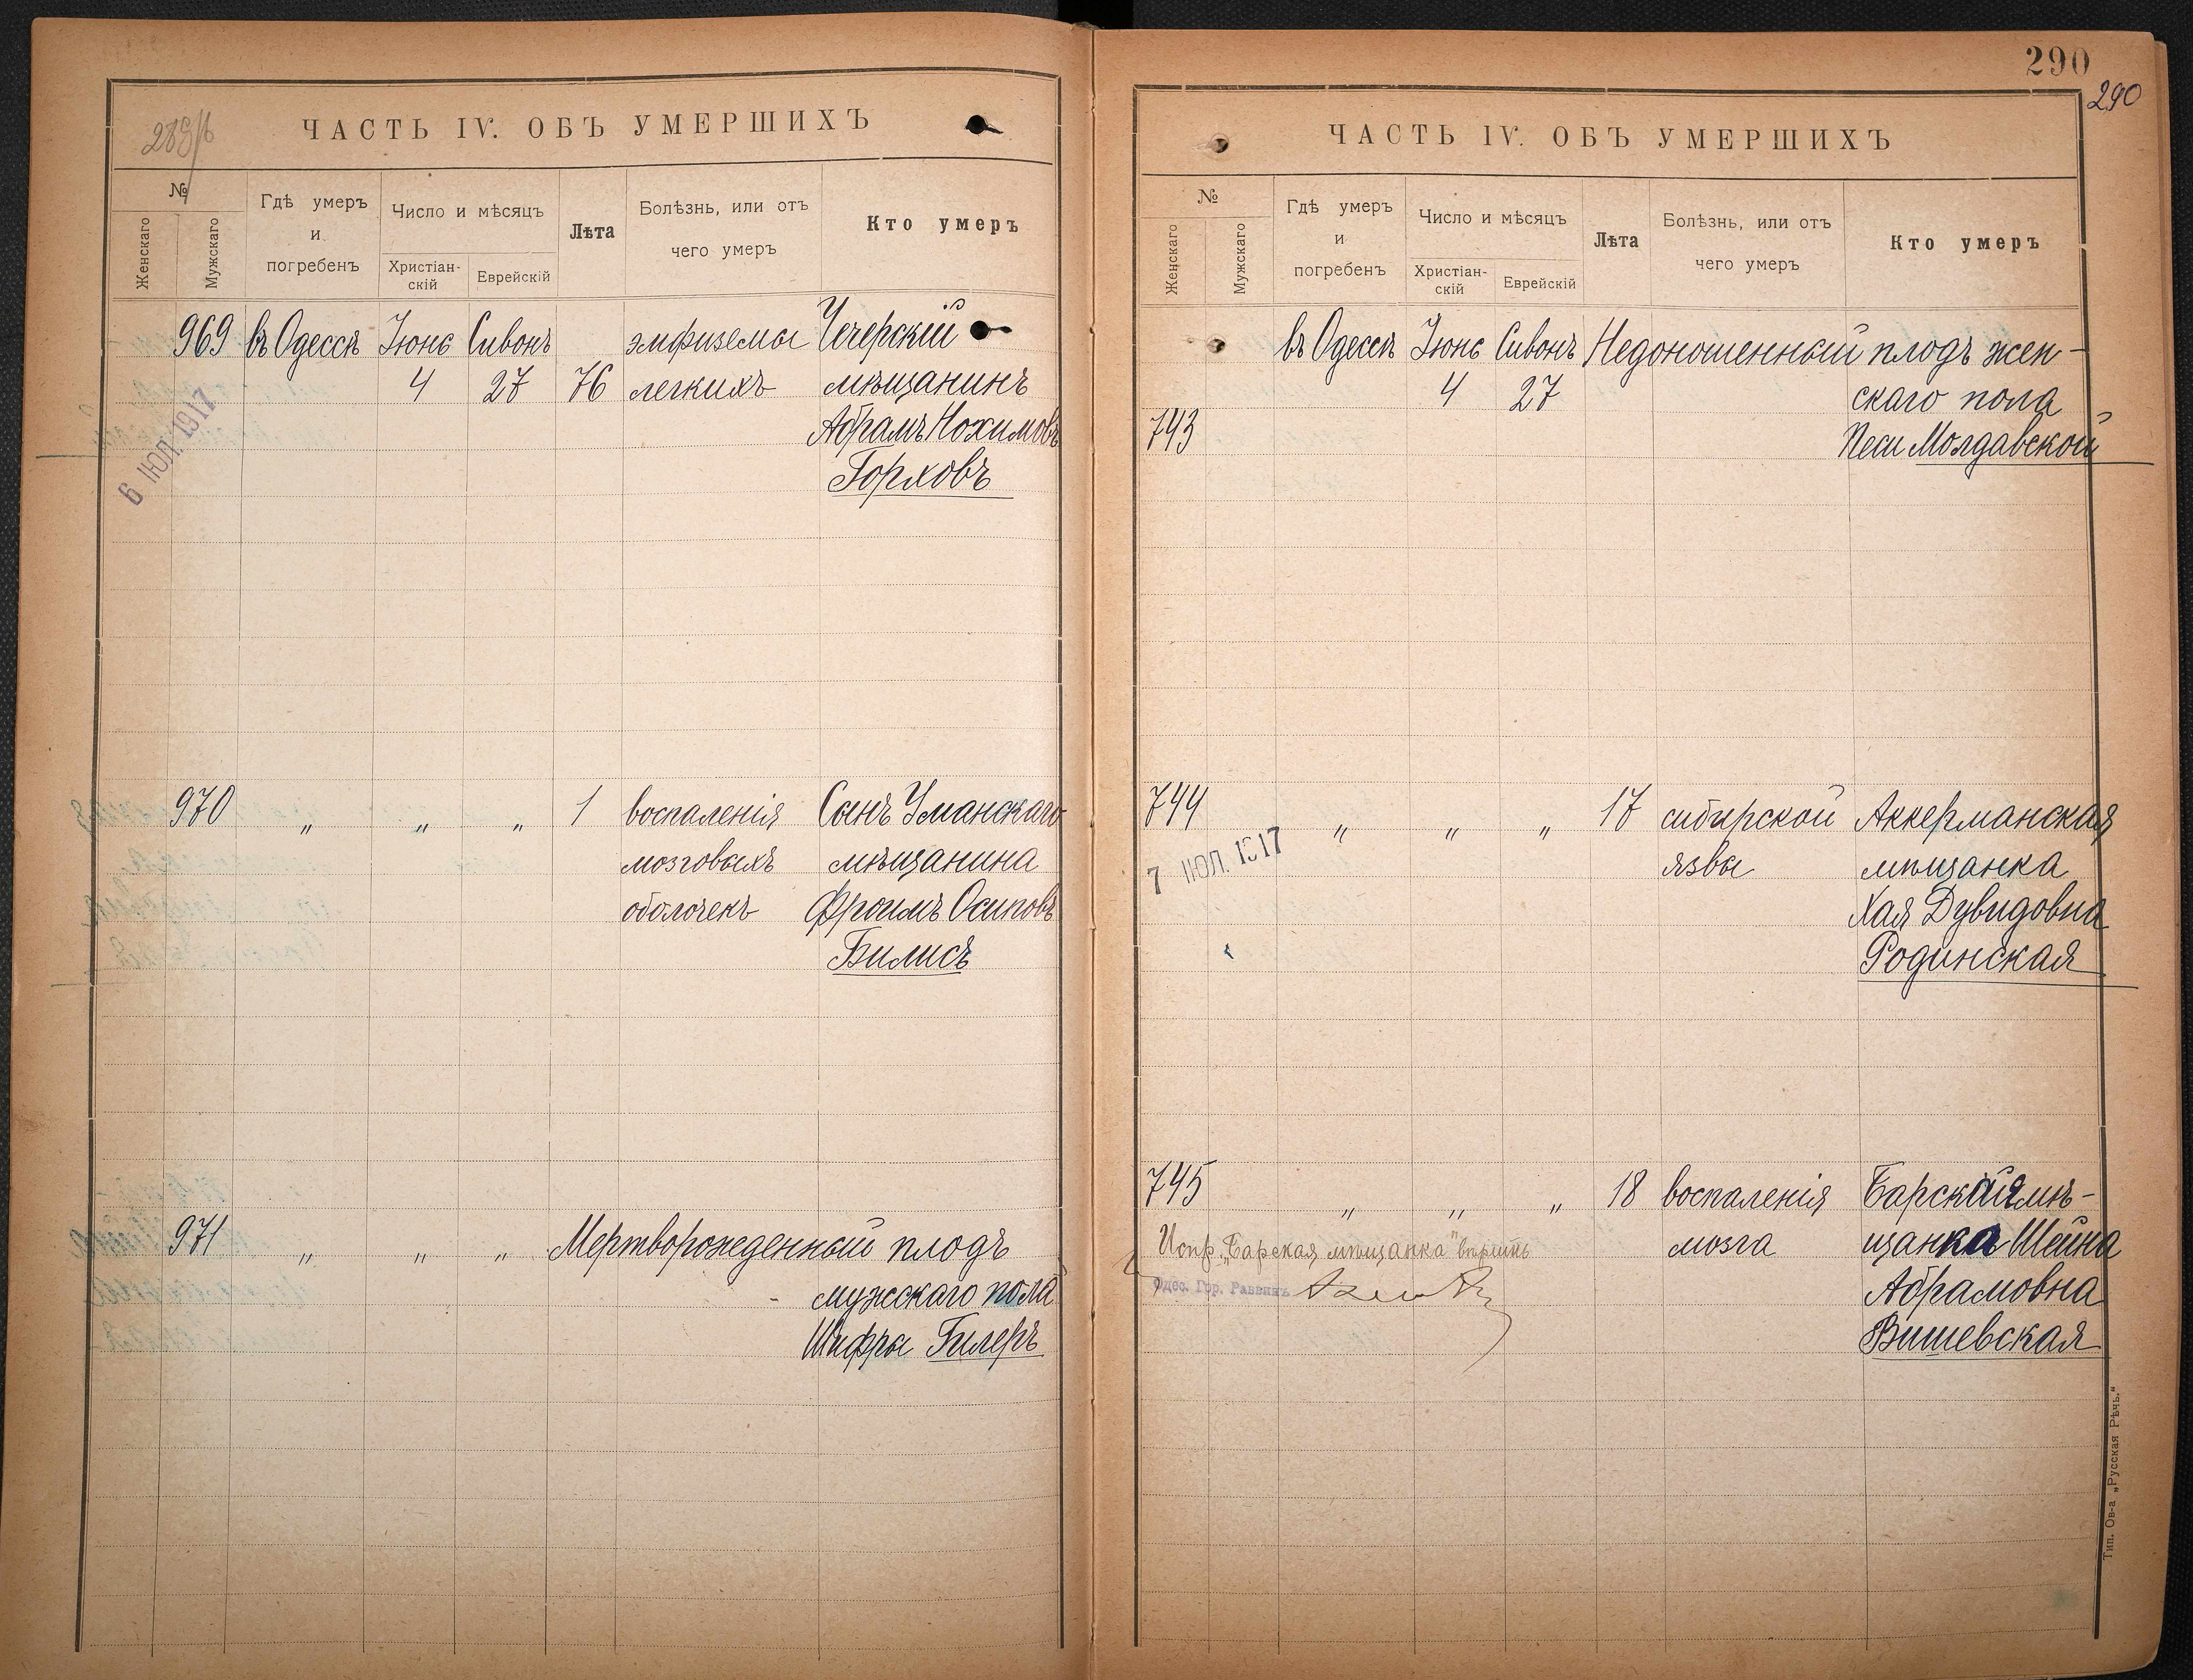 289/б
ЧАСТЬ IV. ОБЪ УМЕРШИХЪ
№
Женскаго
Мужскаго
Гдѣ умеръ
и
погребенъ
Число и мѣсяцъ
Христіан-
скій
Еврейскій
Лѣта
Болѣзнь, или отъ
чего умеръ
Кто умеръ
969 въ Одессѣ Іюнь Сивонъ эмфиземы Чечерскій
4 27 76 легкихъ мѣщанинъ
Абрамъ Нохимовъ
Горховъ
6 ІЮЛ. 1917
970 " " " 1 воспаленія Сынъ Уманскаго
мозговыхъ мѣщанина
оболочекъ Фроимъ Осиповъ
Билисъ
971 " " " Мертворожденный плодъ
мужскаго пола
Шифры Гилеръ
290
290
ЧАСТЬ IV. ОБЪ УМЕРШИХЪ
№
Женскаго
Мужскаго
Гдѣ умеръ
и
погребенъ
Число и мѣсяцъ
Христіан-
скій
Еврейскій
Лѣта
Болѣзнь, или отъ
чего умеръ
Кто умеръ
въ Одессѣ Іюнь Сивонъ Недоношенный плодъ жен-
4 27 скаго пола
743 Песи Молдавской
744 " " " 17 сибирской Аккерманская
язвы мѣщанка
7 ІЮЛ. 1917
Хая Дувидовна
Родинская
745 " " " 18 воспаленія Барская мѣ-
мозга щанка Шейна
Испр. „Барская мѣщанка" вѣрить
Одес. Гор. Раввинъ
Абрамовна
Вишевская
Тип. Ов-а „Русская Рѣчь."